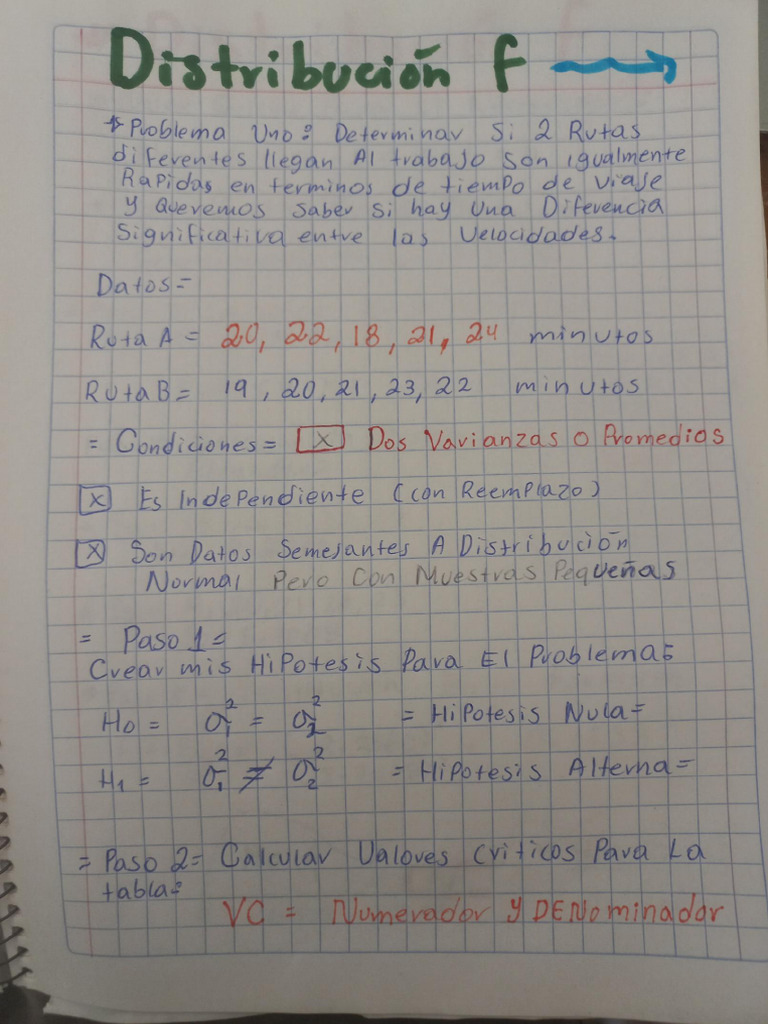 Distribución f →
→ Problema Uno: Determinar Si 2 Rutas
diferentes llegan Al trabajo Son igualmente
Rapidas en terminos de tiempo de viaje
y Queremos Saber Si hay Una Diferencia
Significativa entre las Velocidades.
Datos=
Ruta A = 20, 22, 18, 21, 24 minutos
Ruta B = 19, 20, 21, 23, 22 minutos
= Condiciones = [x] Dos Varianzas o Promedios
[x] Es Independiente (con Reemplazo)
[x] Son Datos Semejantes A Distribución
Normal Pero Con Muestras Pequeñas
= Paso 1 =
Crear mis Hipotesis Para El Problema:
H0 = σ₁² = σ₂² = Hipotesis Nula=
H1 = σ₁² ≠ σ₂² = Hipotesis Alterna=
= Paso 2 = Calcular Valores Criticos Para La
tabla:
VC = Numerador y DENominador